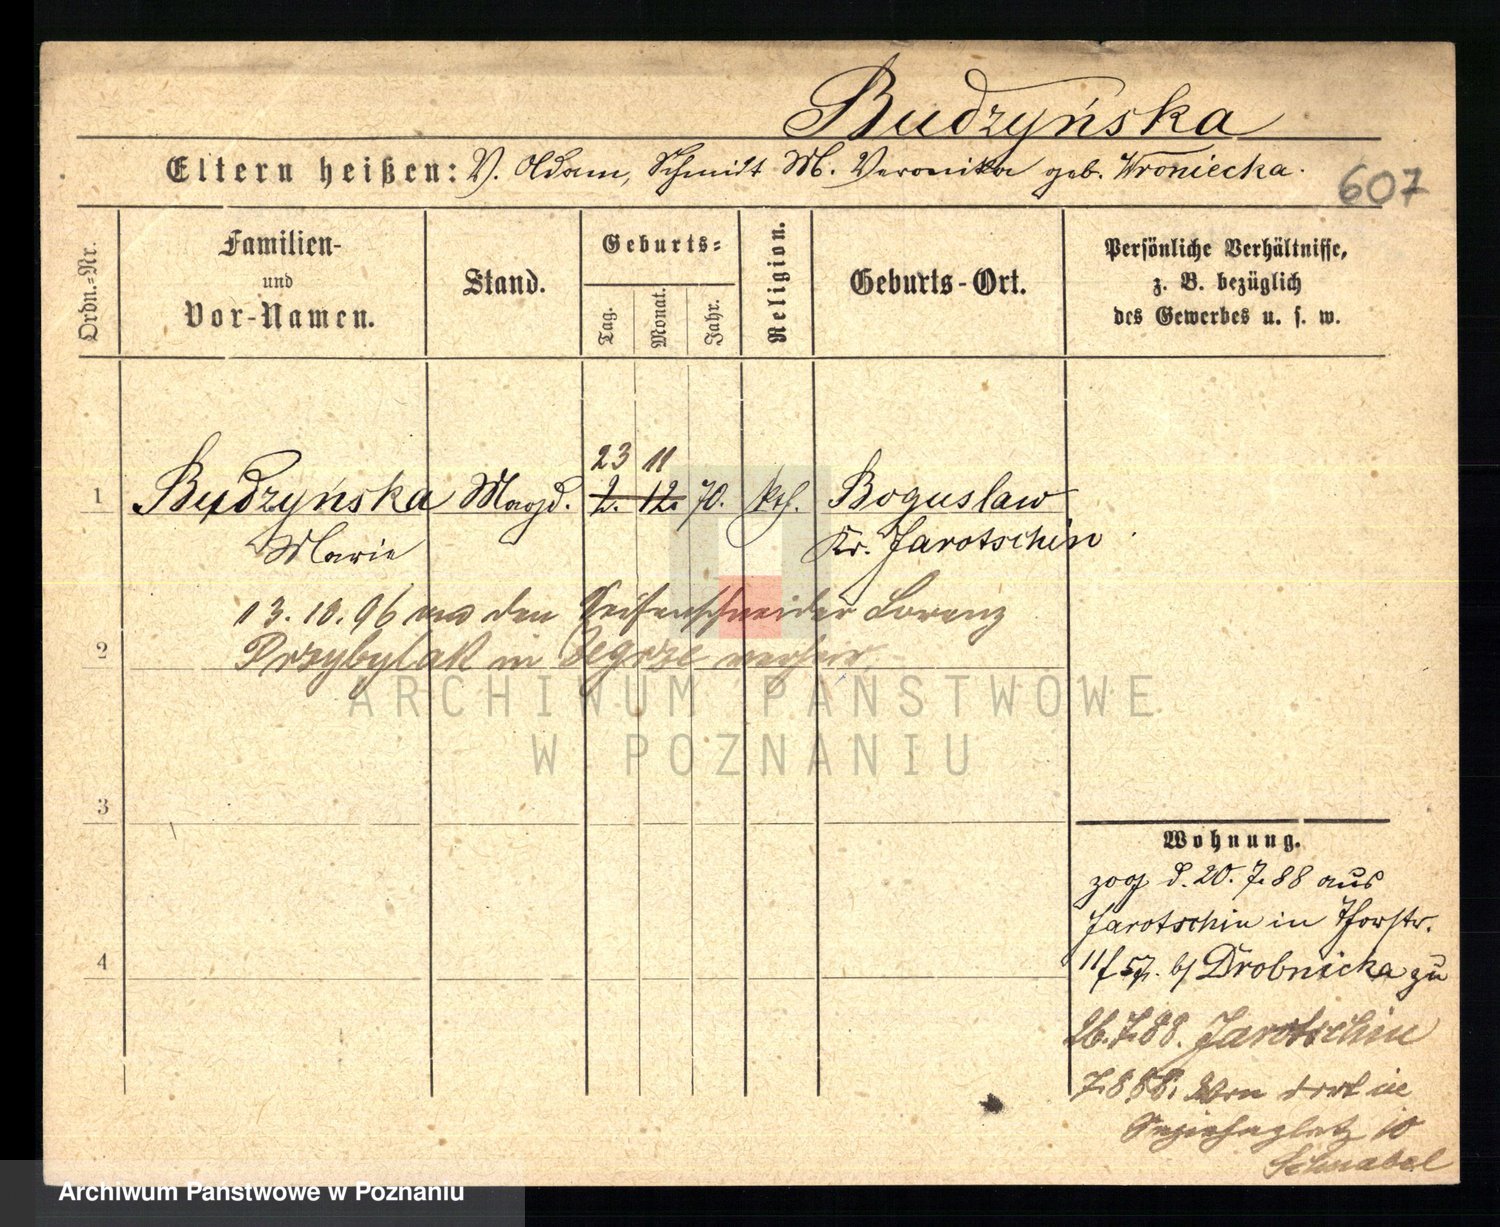 Budzyńska
Eltern heißen: V. Adam, Schmidt M. Veronika geb. Wroniecka.
607
Ordn.-Nr.
Familien-
und
Vor-Namen.
Stand.
Geburts-
Tag.
Monat.
Jahr.
Religion.
Geburts-Ort.
Persönliche Verhältnisse,
z. B. bezüglich
des Gewerbes u. s. w.
23 11
1 Budzyńska Magd. 2. 12. 70. kth. Boguslaw
Marie Kr. Jarotschin
13.10.96 den Lorenz
2 Przybylak in Zegrze
ARCHIWUM PAŃSTWOWE
W POZNANIU
3
Wohnung.
zog d. 20.7.88 aus
Jarotschin in Thorstr.
4
b/ Drobnicka zu
26.7.88. Jarotschin
7.8.88. von dort in
10
Schnabel
Archiwum Państwowe w Poznaniu